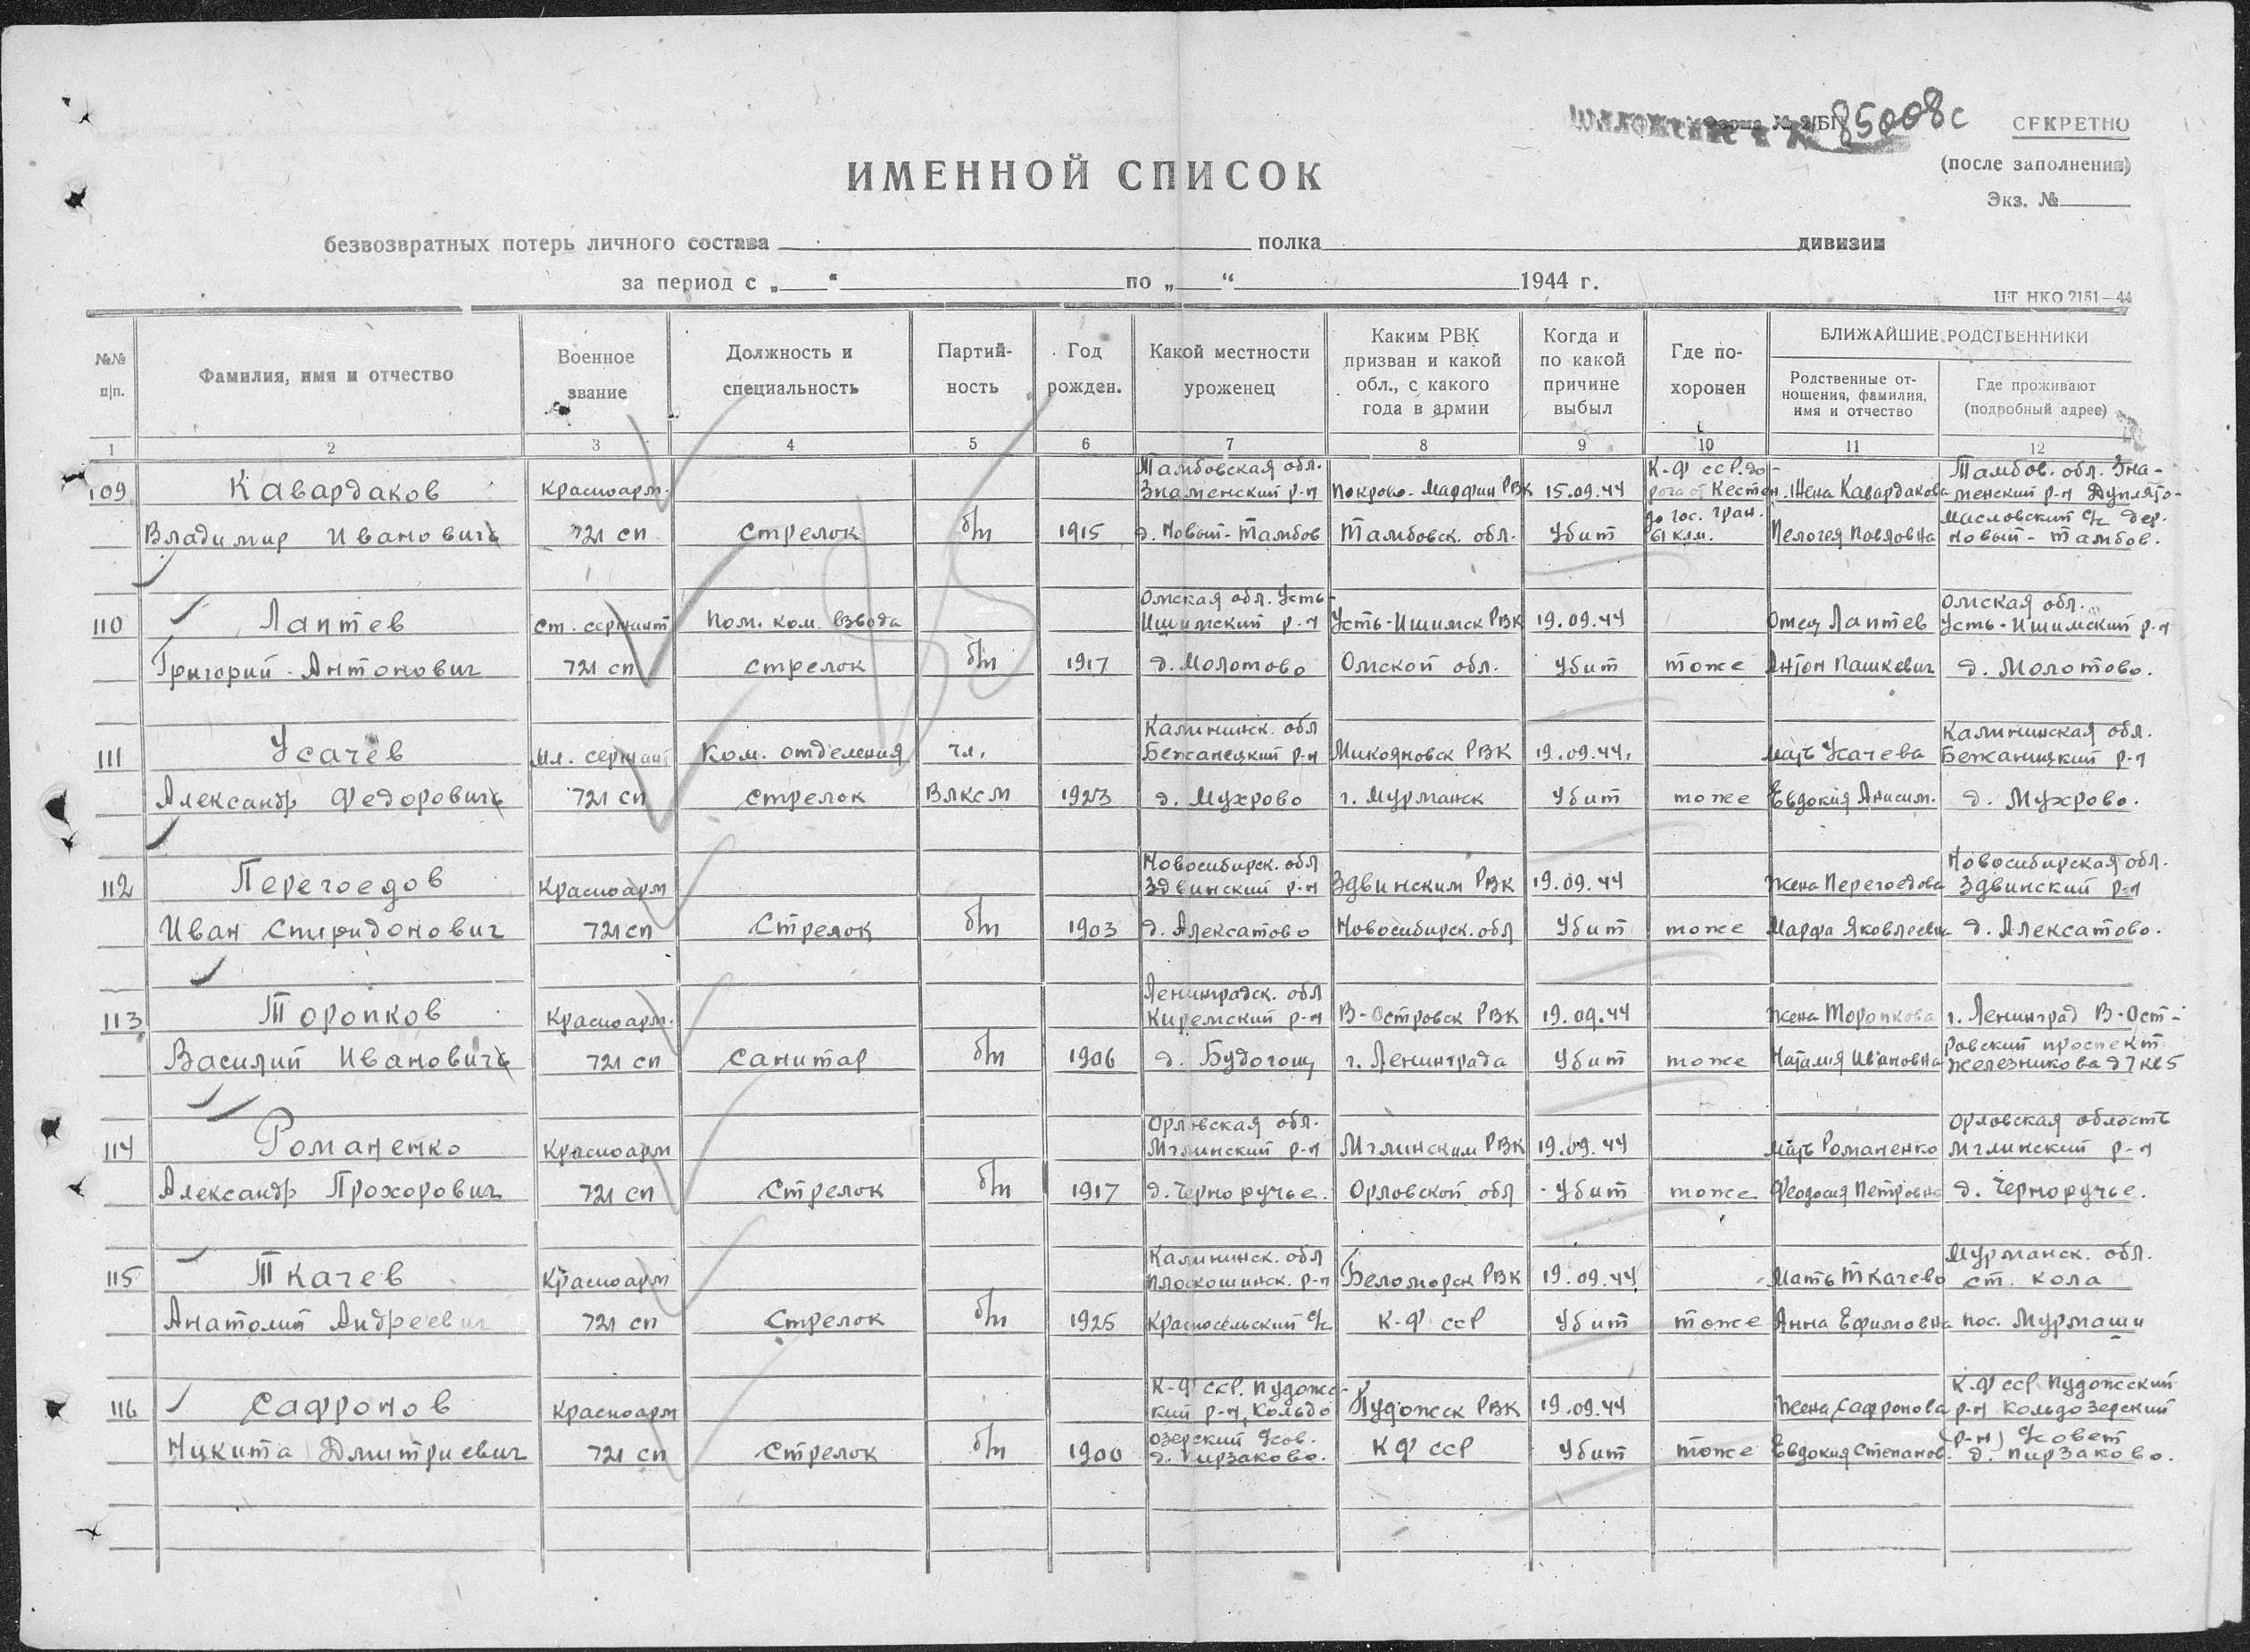 Форма № 2/БП
85008с
СЕКРЕТНО
(после заполнения)
Экз. №
ИМЕННОЙ СПИСОК
безвозвратных потерь личного состава полка дивизии
за период с „ “ по „ “ 1944 г.
ЦТ НКО 2151—44
№№ п|п.
Фамилия, имя и отчество
Военное звание
Должность и специальность
Партий-
ность
Год рожден.
Какой местности уроженец
Каким РВК
призван и какой
обл., с какого
года в армии
Когда и
по какой
причине
выбыл
Где по-
хоронен
БЛИЖАЙШИЕ РОДСТВЕННИКИ
Родственные от-
ношения, фамилия,
имя и отчество
Где проживают
(подробный адрес)
1 2 3 4 5 6 7 8 9 10 11 12
109 Кавардаков Красноарм. Тамбовская обл. Знаменский р-н Покрово-Марфин РВК 15.09.44 К-Ф ССР. до-рога от Кестен. Жена Кавардакова Тамбов. обл. Зна-менский р-н Дуплято-
Владимир Ивановичь 721 сп Стрелок б/п 1915 д. Новый-Тамбов Тамбовск. обл. Убит до гос. гран. 61 клм. Пелогея Повловна Масловский с/с дер. Новый-Тамбов.
110 Лаптев Ст. сержант Пом. ком. взвода Омская обл. Усть-Ишимский р-н Усть-Ишимск РВК 19.09.44 Отец Лаптев Омская обл. Усть-Ишимский р-н
Григорий Антонович 721 сп стрелок б/п 1917 д. Молотово Омской обл. Убит тоже Антон Пашкевич д. Молотово.
111 Усачев Мл. сержант Ком. отделения чл. Калининск. обл Бежанецкий р-н Микояновск РВК 19.09.44. Мать Усачева Калининская обл. Бежаницкий р-н
Александр Федоровичь 721 сп стрелок ВЛКСМ 1923 д. Мухрово г. Мурманск Убит тоже Евдокия Анисим. д. Мухрово.
112 Перегоедов Красноарм Новосибирск. обл Здвинский р-н Здвинским РВК 19.09.44 Жена Перегоедова Новосибирская обл. Здвинский р-н
Иван Спиридонович 721 сп Стрелок б/п 1903 д. Алексатово Новосибирск. обл Убит тоже Марфа Яковлевна д. Алексатово.
113 Торопков Красноарм. Ленинградск. обл Киремский р-н В-Островск РВК 19.09.44 Жена Торопкова г. Ленинград В-Ост-
Василий Ивановичь 721 сп санитар б/п 1906 д. Будогощ г. Ленинграда Убит тоже Наталия Ивановна ровский проспект Железникова д 7 кв 5
114 Романенко Красноарм Орловская обл. Мглинский р-н Мглинским РВК 19.09.44 Мать Романенко Орловская область Мглинский р-н
Александр Прохорович 721 сп Стрелок б/п 1917 д. Черноручье. Орловской обл Убит тоже Феодосия Петровна д. Черноручье.
115 Ткачев Красноарм Калининск. обл Плоскошинск. р-н Беломорск РВК 19.09.44 Мать Ткачево Мурманск. обл. ст. Кола
Анатолий Андреевич 721 сп Стрелок б/п 1925 Красносельский с/с К-Ф ССР Убит тоже Анна Ефимовна пос. Мурмаши
116 Сафронов Красноарм К-Ф ССР. Пудожс-кий р-н, Кольдо Пудожск РВК 19.09.44 Жена Сафронова К-Ф ССР Пудожский р-н Кольдозерский
Никита Дмитриевич 721 сп Стрелок б/п 1900 озерский с/сов. д. Пирзаково. К Ф ССР Убит тоже Евдокия Степанов. (р-н) с/совет д. Пирзаково.